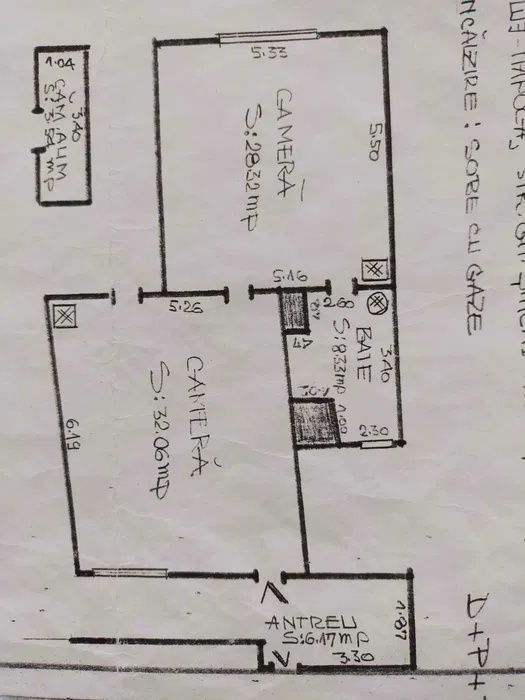 ÎNCĂLZIRE: SOBE CU GAZE
D+P+
1.04
3.40
CĂM.ALIM
S: 3.54 mp
5.33
CAMERĂ
S: 28.32mp
5.50
5.16
5.26
2.60
BAIE
S: 8.33mp
3.40
1.00
2.30
CAMERĂ
S: 32.06mp
6.19
ANTREU
S: 6.17mp
1.87
3.30